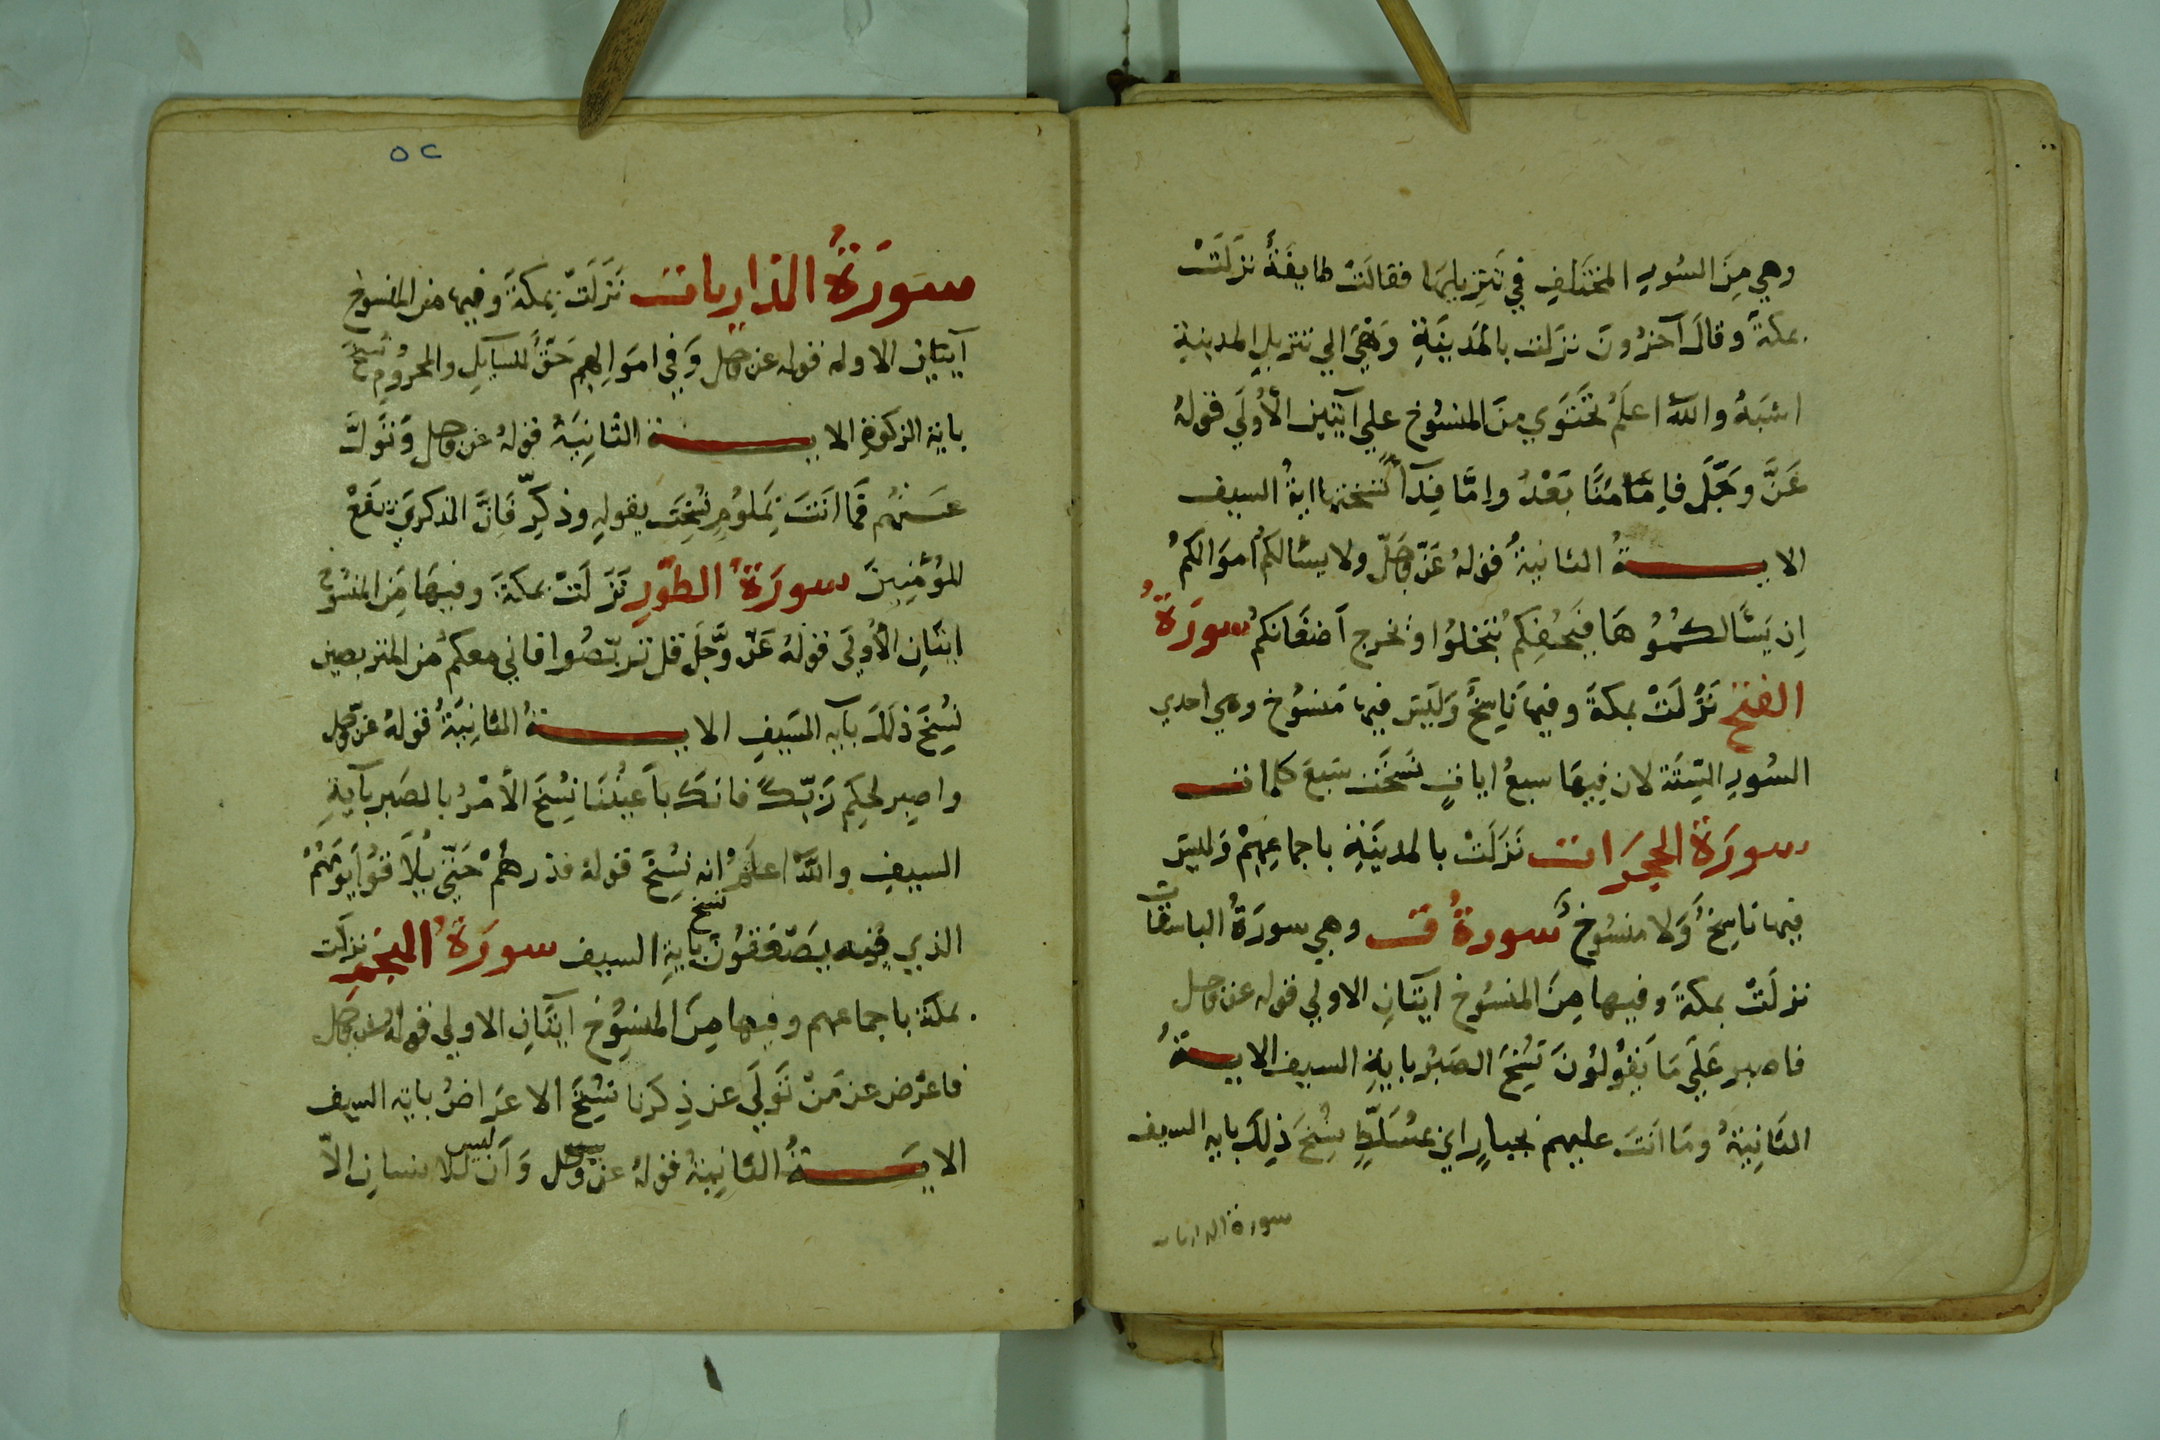 وهي مِنَ السُورِ المختَلفِ في تَنزِيلِهَا فقالَتْ طايفَةٌ نزَلَتْ
بمكةَ وقالَ آخرُونَ نزلت بالمَدينَةِ وَهْيَ الي تنزيلِ المدينةِ
اشبَهُ واللهُ اعلَمُ تحتَوي مِنَ المنسُوخِ علي آيتين الأُولَي قولهُ
عَزَّ وجَلَّ فاِمَّا مَنًّا بَعْدُ وامَّا فِدَآءً نسختها ايةُ السيف
الايـــةُ الثانيةُ قولهُ عَزّ وَجَلّ ولا يسئالكم اموَالكمُ
اِن يَسئَالكمُوُهَا فيُحْفِكم تُبَخلوُا وُيخرج اَضغَانكمُ سورَةُ
الفتح نَزَلَتْ بمكةَ وفيها نَاسِخٌ وَليَسَ فيها مَنسُوخ وهي احدي
السُورِ السِتَّة لان فِيهَا سبعُ اياتٍ نسَخَت سَبعَ كلمات
سورَة الحجرَات نَزَلَتْ بالمدينَةِ باجماعِهِمْ وَليسَ
فيها ناسِخٌ وَلا منسُوخٌ سورةُ ق وهي سورَةُ الباسقات
نزلَتْ بمكةَ وفيها مِنَ المنسُوخ ايتَانِ الاولي قوله عز وجل
فاصبر عَلَي مَا يَقوُلوُنَ نُسِخَ الصَبرُ بايةِ السيف الايــةُ
الثانِيَةُ ومَا انتَ عليهم بجبارٍ اي بمسَلّطٍ نسِخَ ذلِكَ بايه السيف
سورة الداريات
٥٢
سوَرَةُ الذاريات نَزَلَتْ بمكةَ وفيها من المنسوخ
آيتان الاوله قوله عز وجل وَفي اموَالِهِم حَقٌّ للسآيلِ والمحرُومِ نُسخَ
باية الزكوةِ الايـــة الثانِيَةُ قولهُ عز وجل وَتَولَّ
عَنهُم فَمَا انَتَ بمَلوُمٍ نُسِخَت بقوله وذكِّر فَاِنَّ الذكرَي تنفَعُ
المُؤمِنِينَ سورَةُ الطوُرِ نَزَلَتْ بمكةَ وفيهَا مِنَ المنسُوخ
ايتَانِ الأُولَي قولهُ عَزّ وَّجَلّ قل تربّصُوا فاني معكم من المتربصين
نُسِخَ ذلَكَ بآيه السَيفِ الايـــةُ الثانِيَةُ قولهُ عزّ وجل
واصبر لحكِم رَبّكَ فانكَ باَعيُننَا نسُخَ الأمرُ بالصَبر بآيةِ
السيفِ واللهُ اعلَمُ انه نُسِخَ قولهُ فذرهُمْ حَتّي يُلاَقوُا يَومَهُمُ
الذي فِيه يصَعَقوُنَ نسخ بايةِ السيف سورَةُ النجمِ نزلَت
بمكة باجماعهم وفيها مِنَ المنسُوخ ايتَانِ الاولي قولهُ عز وجل
فاعرض عن مَنْ تَوَلَي عن ذِكرَنا نسُخَ الاعرَاضُ بايه السيف
الايـــةُ الثانِيةُ قولهُ عز وجل وَاَن ليس للانسانِ الاّ